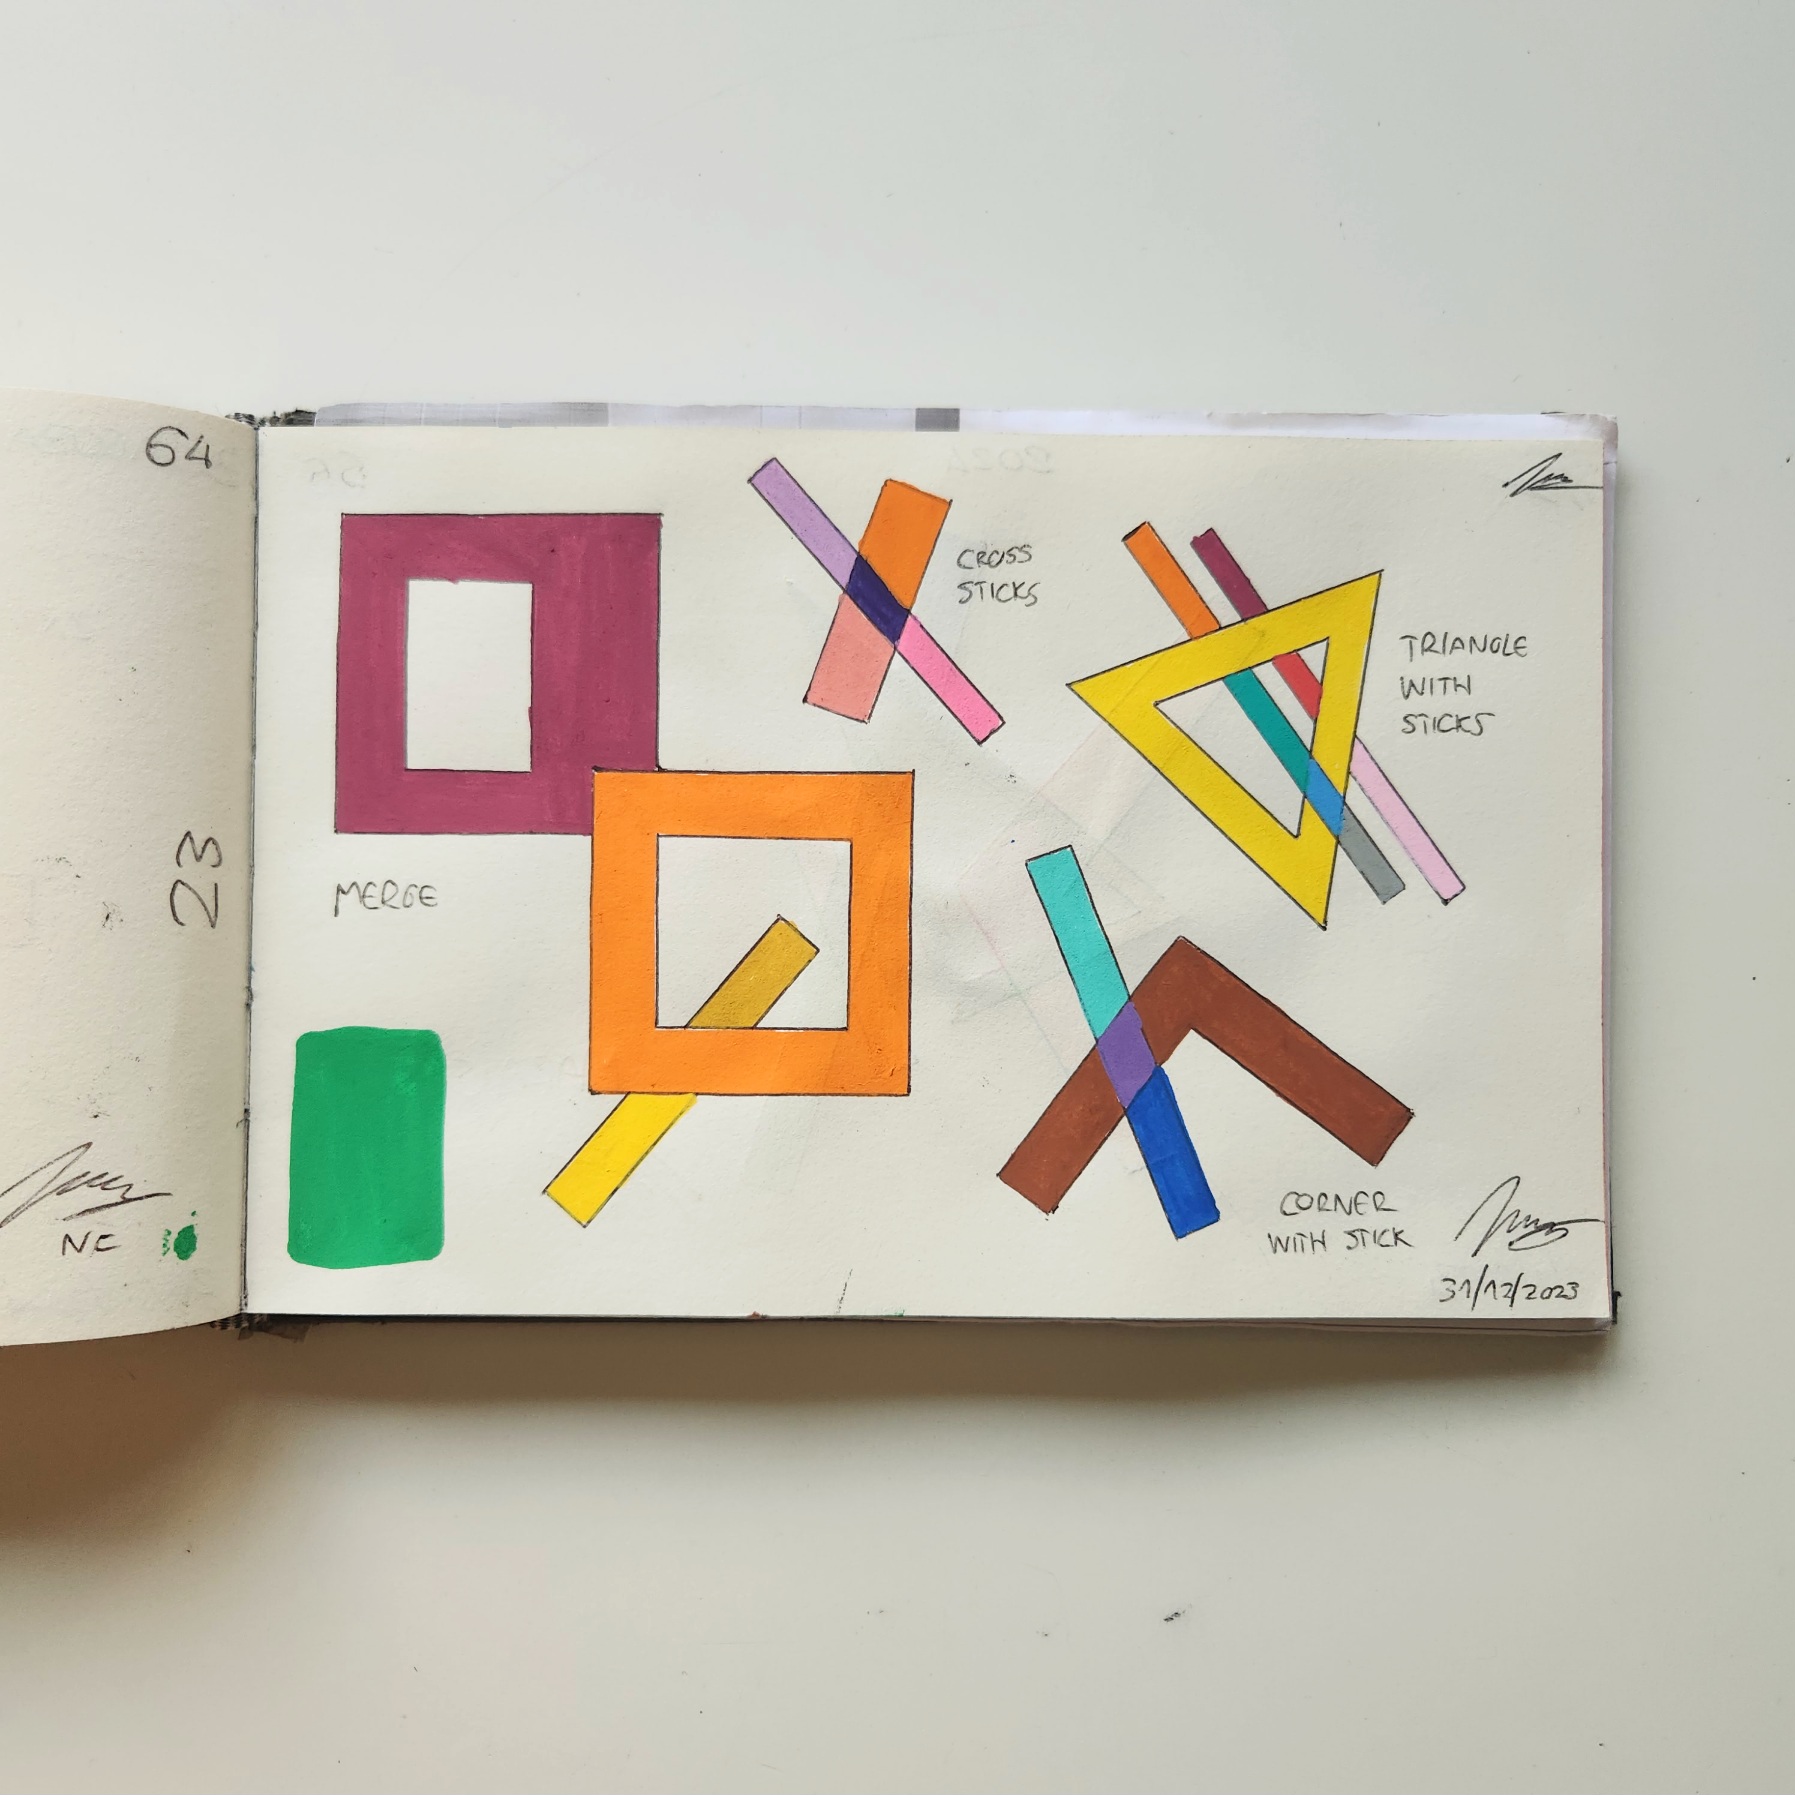 64
23
NC
CROSS
STICKS
TRIANGLE
WITH
STICKS
MERGE
CORNER
WITH STICK
31/12/2023